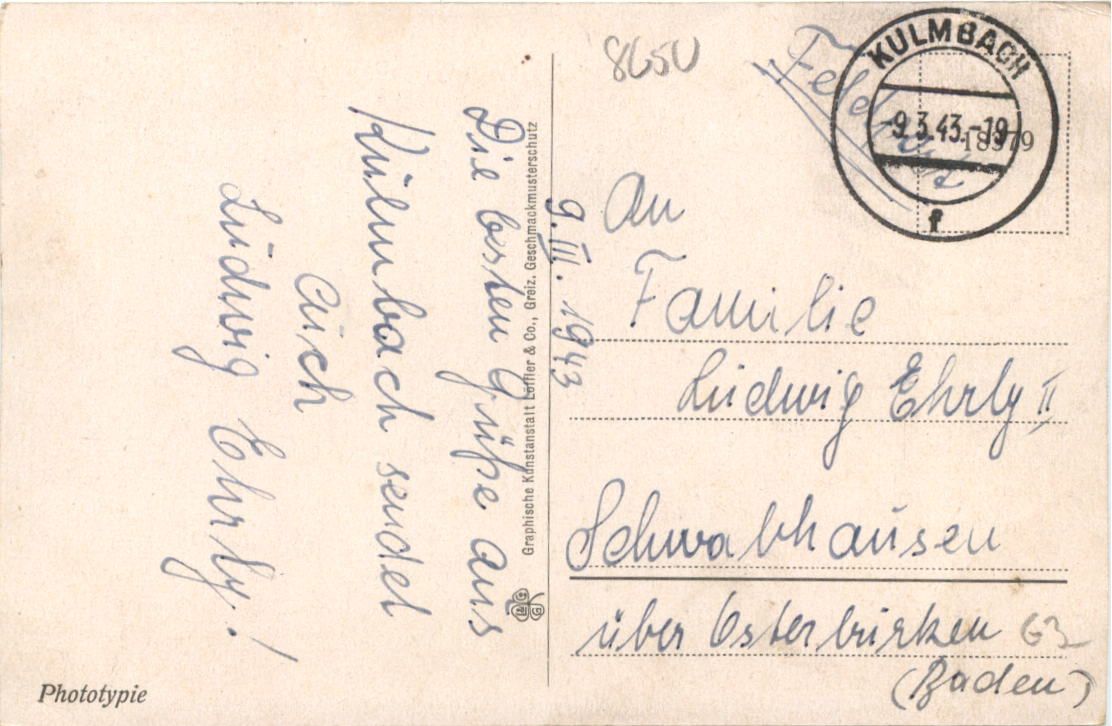 8650
Feldpost
KULMBACH
-9.3.43.-19
18379
f
9. III. 1943
Die besten Grüße aus
Kulmbach sendet
Euch
Ludwig Ehrly!
Graphische Kunstanstalt Löffler & Co., Greiz. Geschmackmusterschutz
An
Familie
Ludwig Ehrly II
Schwabhausen
über Osterburken
(Baden)
Phototypie